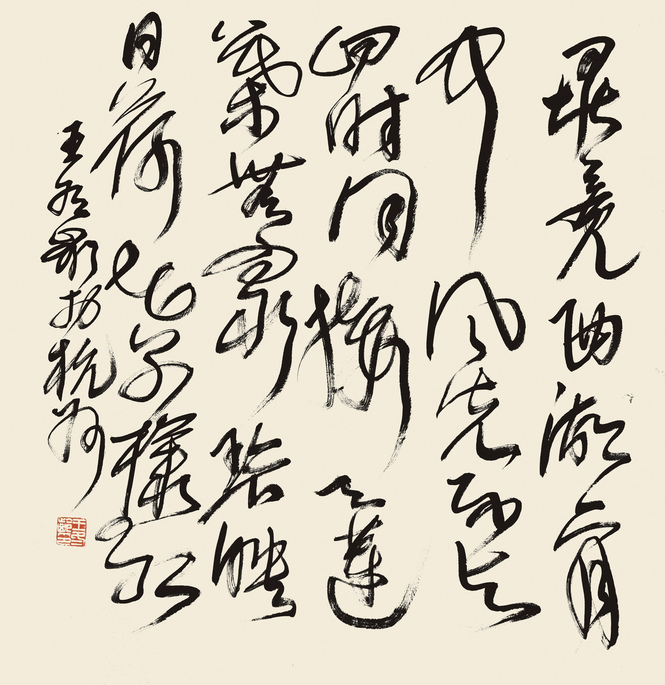 畢竟西湖六月
中風光不与
四時同接天蓮
葉無窮碧映
日荷花別樣紅
王冬齡於杭州